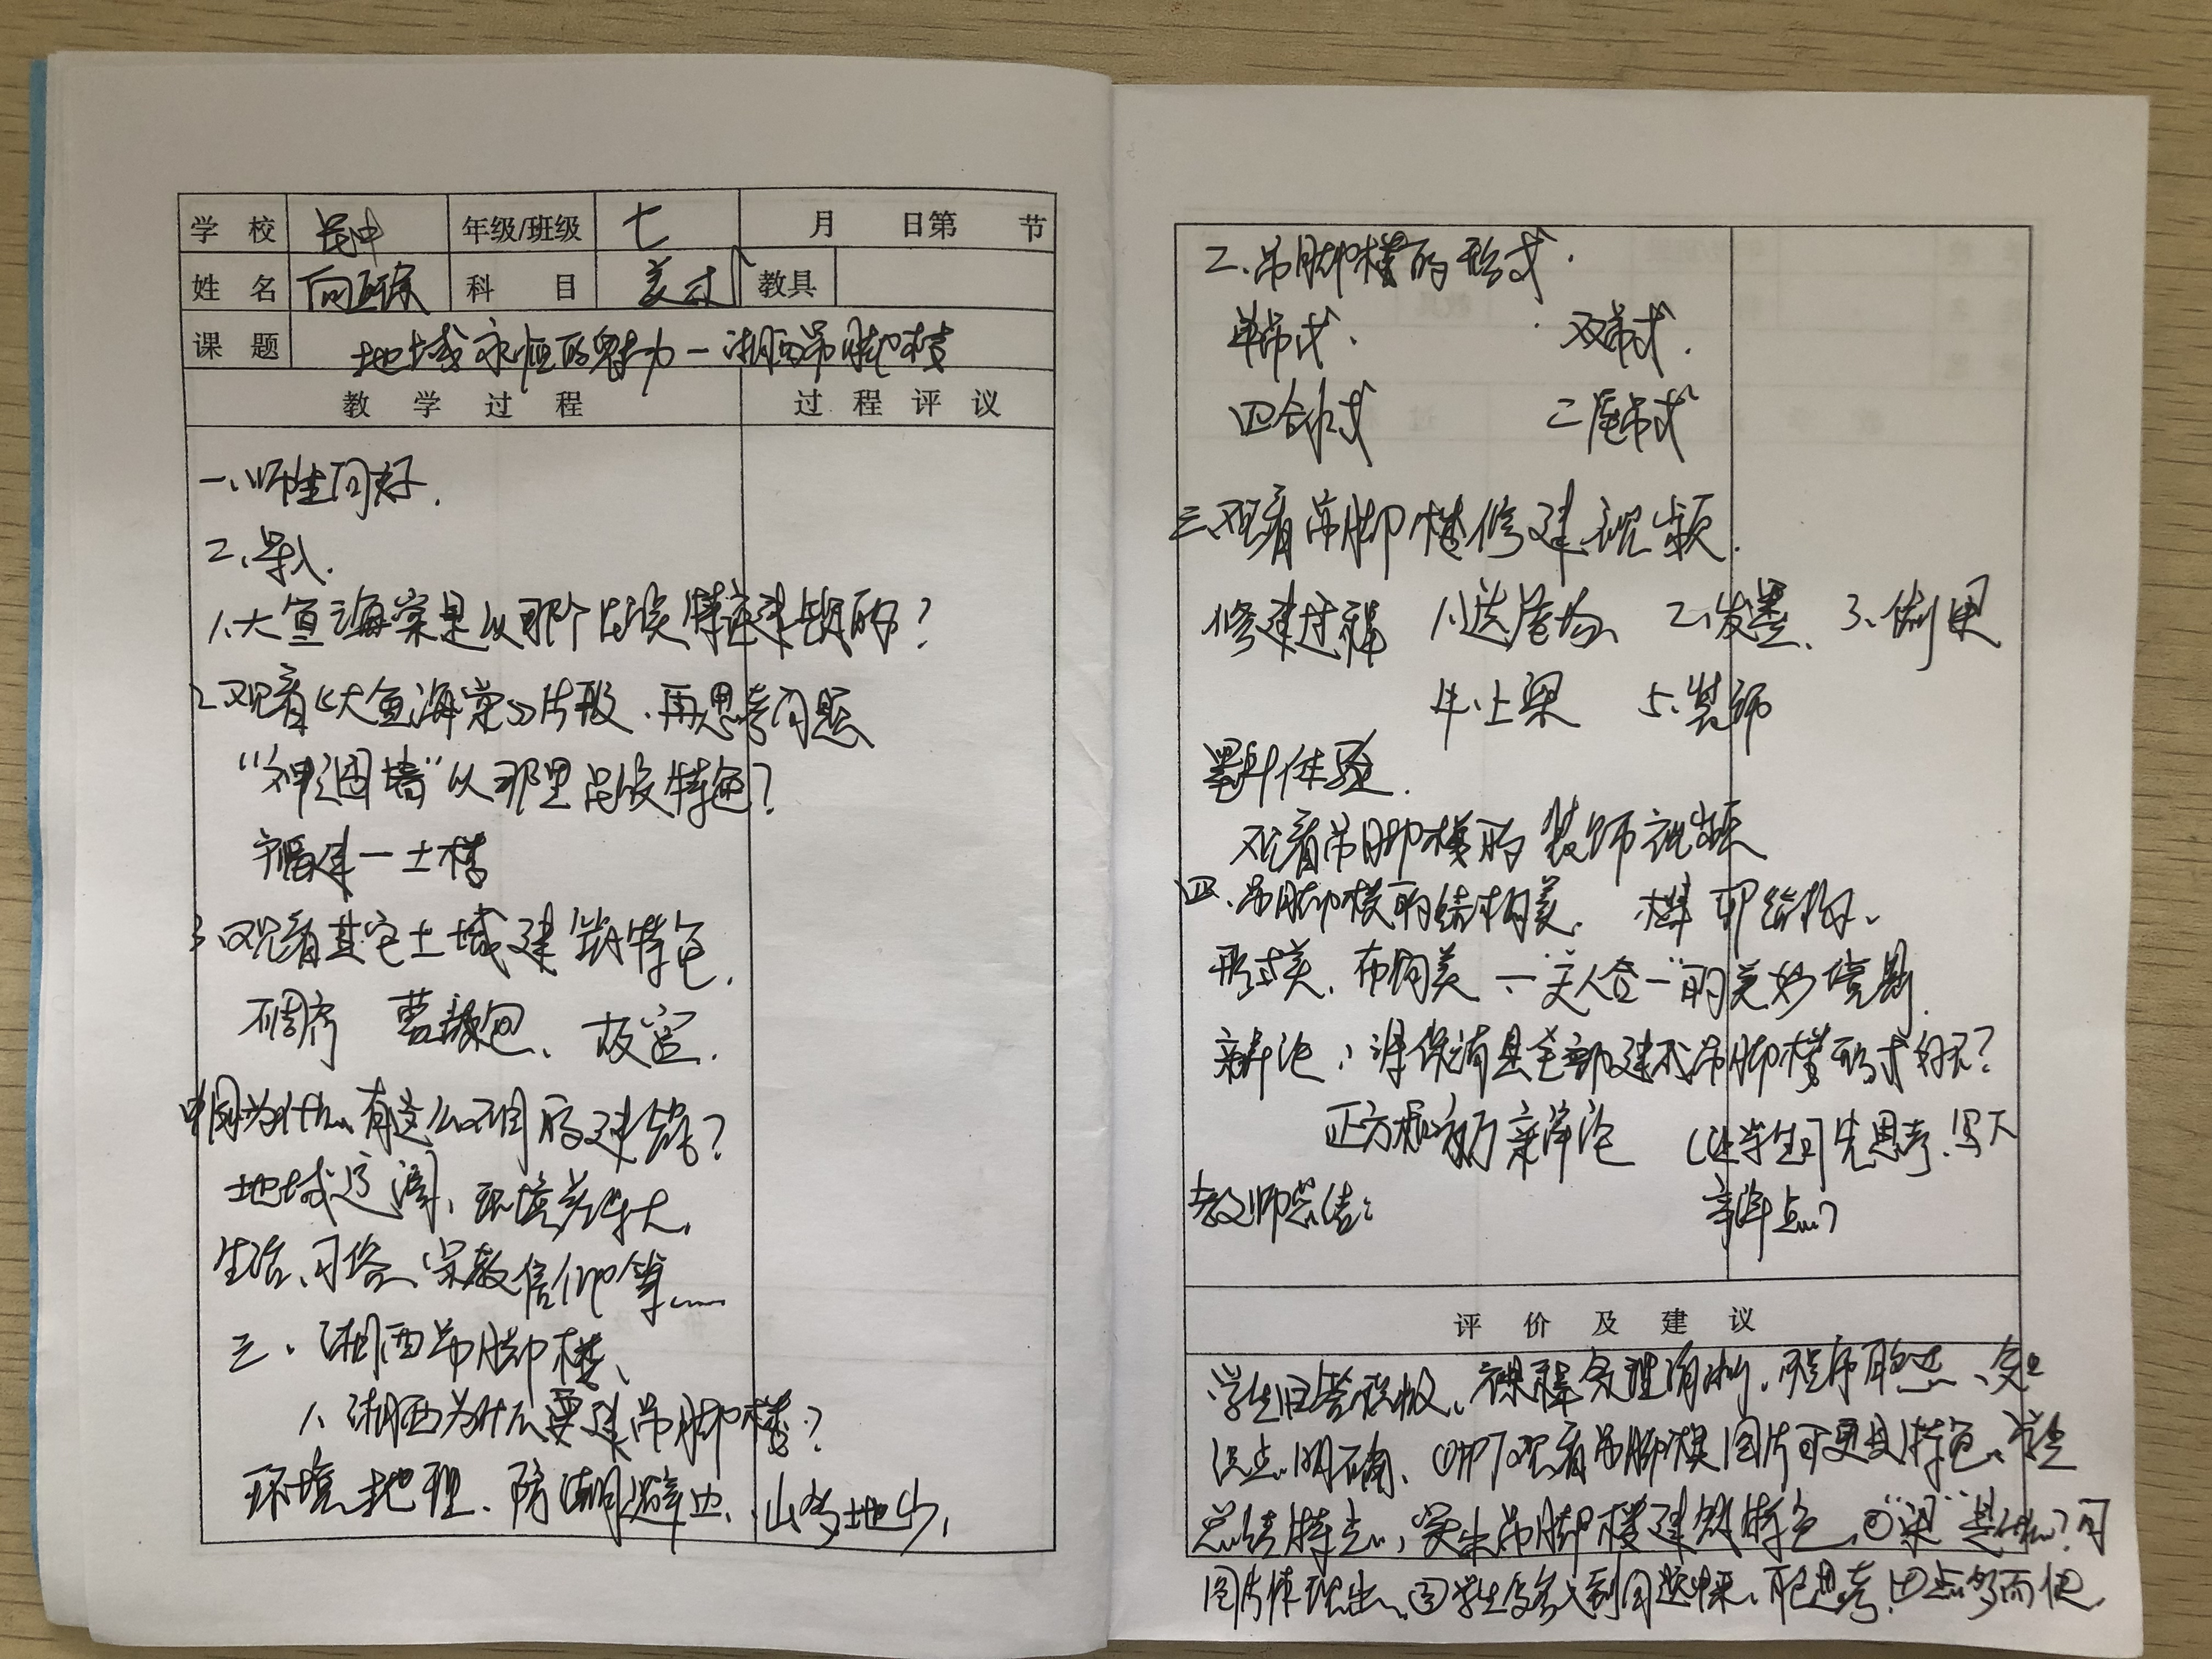 学 校 民中 年级/班级 七 月 日第 节
姓 名 科 目 美术 教具
课 题 地域永恒的魅力—湘西吊脚楼
教 学 过 程 过 程 评 议
一、师生问好.
二、导入.
1、大鱼海棠是从那个 建筑的?
2、观看《大鱼海棠》片段、再思考问题
"神之围楼"从那里 特色?
福建—土楼
3、观看其它土域建筑特色.
蒙古包、故宫.
中国为什么有这么不同的建筑?
地域辽阔、环境差异大、
生活、习俗、宗教信仰等……
三、湘西吊脚楼、
1、湘西为什么要建吊脚楼?
环境、地理、防潮避虫、山多地少、
二、吊脚楼的形式.
单吊式. 双吊式.
四合水式 二屋吊式
三、观看吊脚楼修建视频.
修建过程 1、选屋场、 2、发墨、 3、
4、上梁 5、装饰
体验.
观看吊脚楼的装饰视频
四、吊脚楼的结构美. 榫卯结构、
形式美、布局美、—"天人合一"的美妙境界.
辩论、 保靖县全部建成吊脚楼形式好不?
正方和反方辩论 (让学生们先思考.写下
教师总结: 辩点…)
评 价 及 建 议
学生回答积极、课程条理清晰、
明确、 观看吊脚楼图片可更具特色、学生
总结特点、突出吊脚楼建筑特色、②"梁"是什么?可
图片体现出、③学生